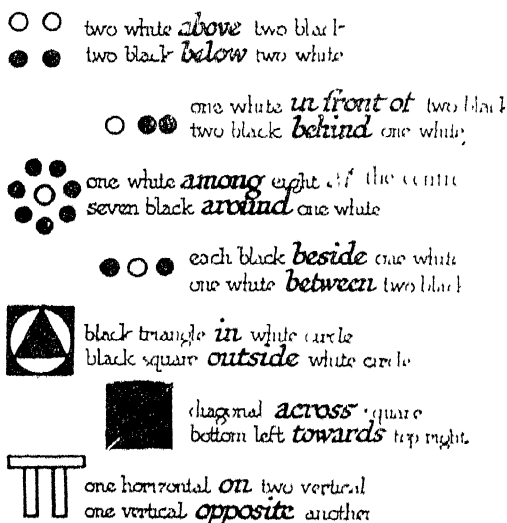 two white above two black
two black below two white
one white in front of two black
two black behind one white
one white among eight at the centre
seven black around one white
each black beside one white
one white between two black
black triangle in white circle
black square outside white circle
diagonal across square
bottom left towards top right
one horizontal on two vertical
one vertical opposite another